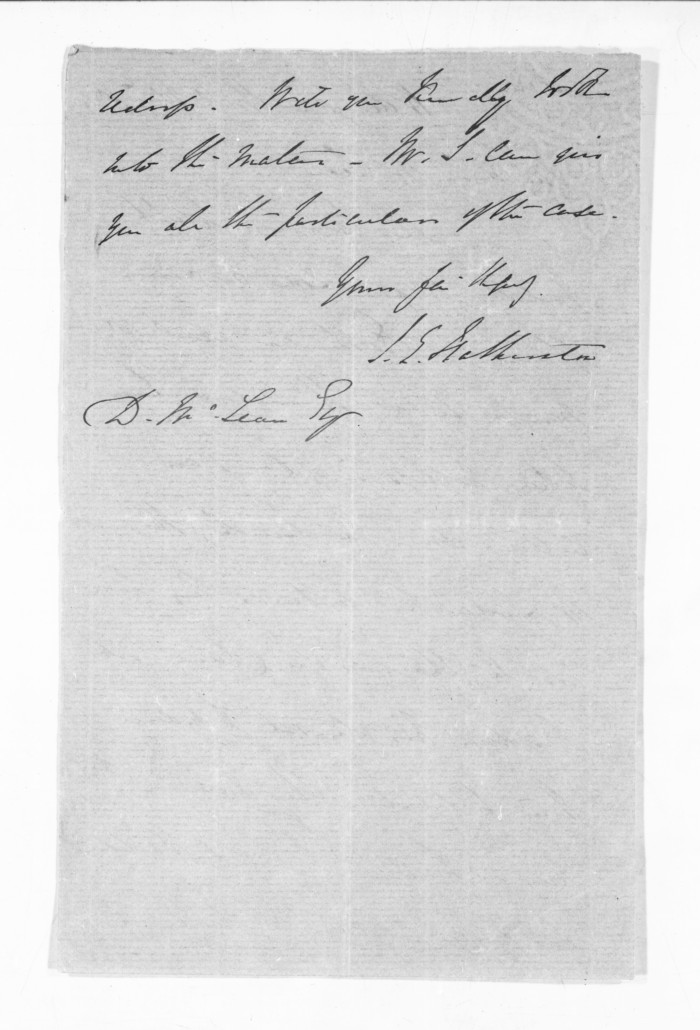 redress. Will you kindly look
into the matter – Mr. S. can give
you all the particulars of the case.
Yours faithfy.
I. E. Featherston
D. McLean Esq